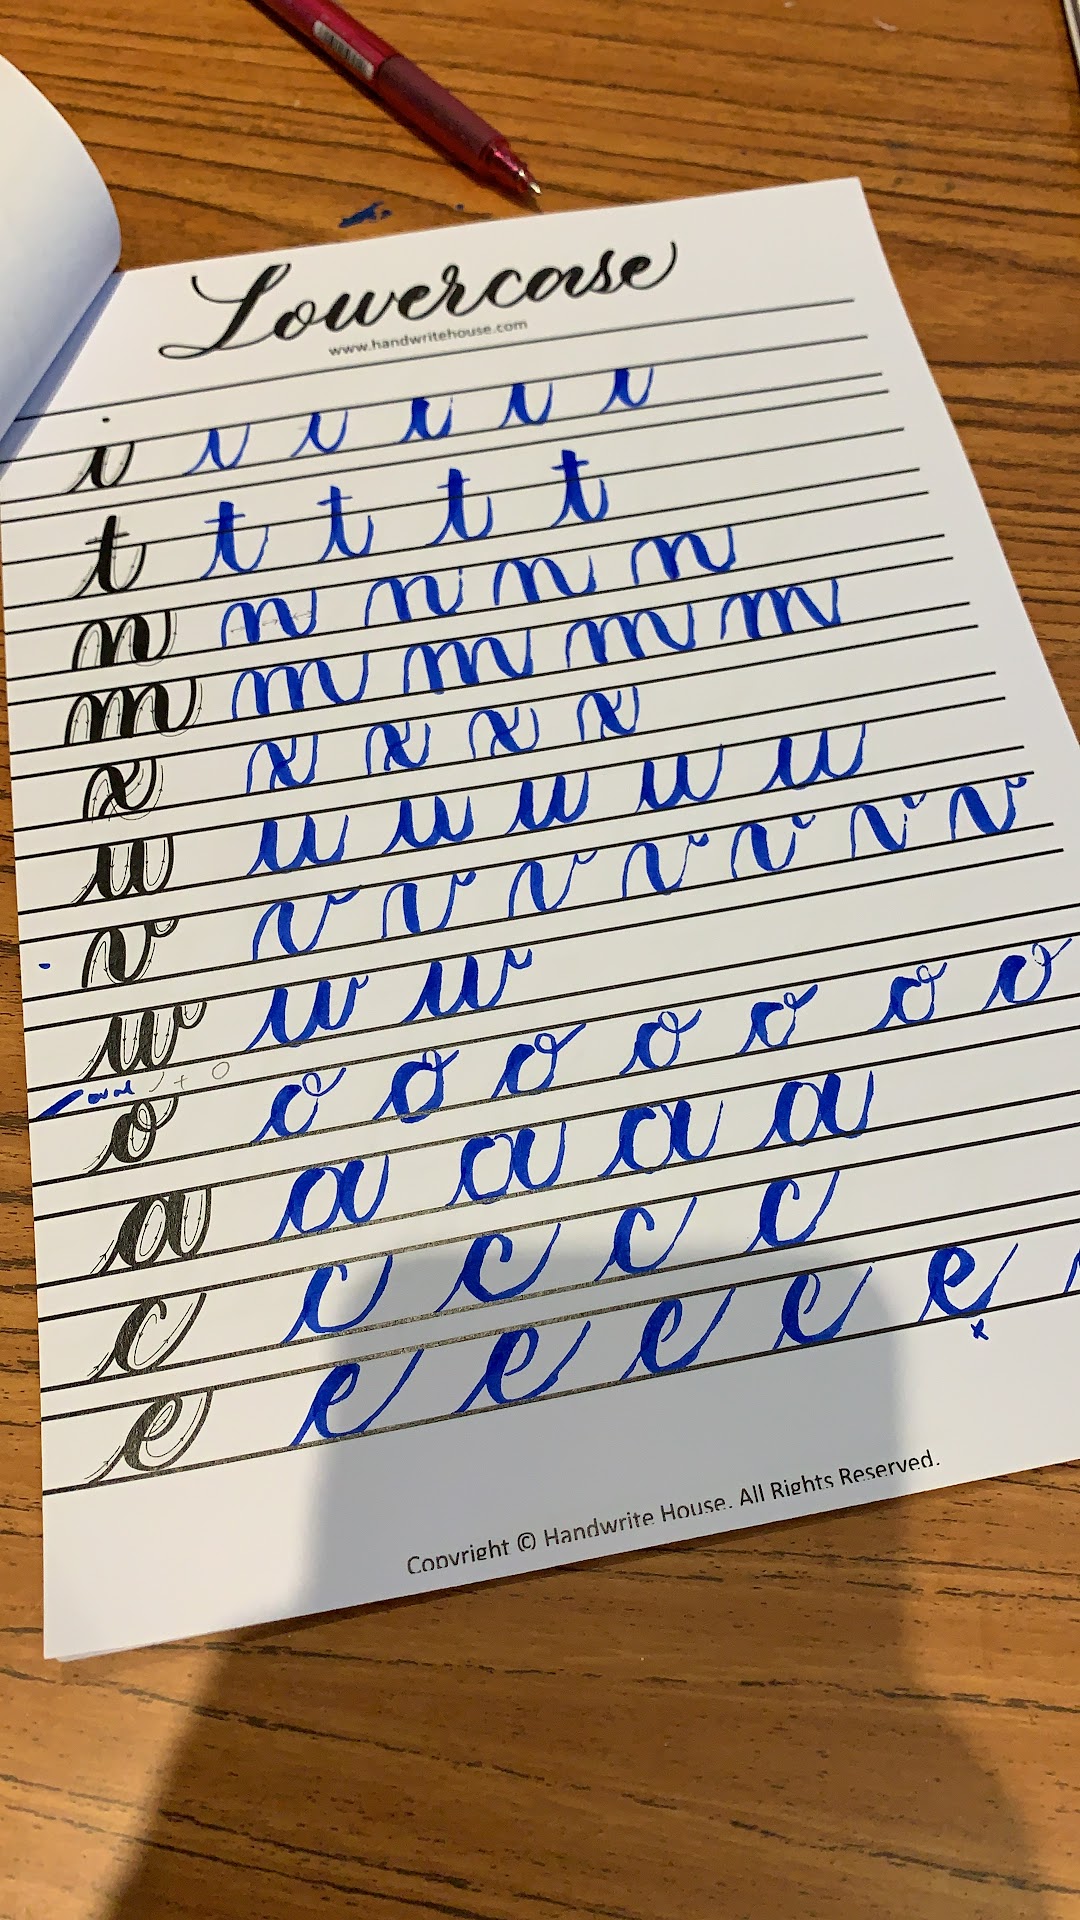 Lowercase
www.handwritehouse.com
i i i i i i
t t t t t
n n n n n
m m m m m
x x x x x
u u u u u u
v v v v v v v v
w w w
oval / + O
o o o o o o o o
a a a a a
c c c c c
e e e e e e
x
Copyright © Handwrite House. All Rights Reserved.